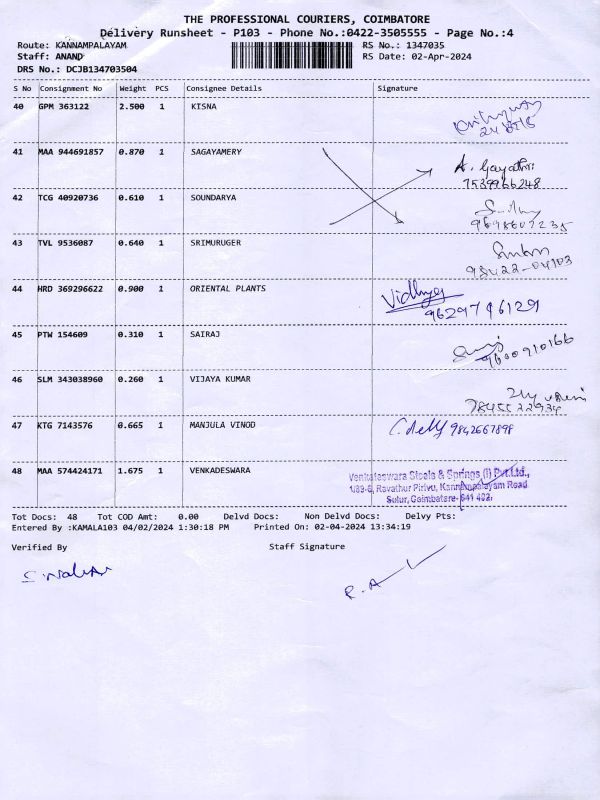 THE PROFESSIONAL COURIERS, COIMBATORE
Delivery Runsheet - P103 - Phone No.:0422-3505555 - Page No.:4
Route: KANNAMPALAYAM RS No.: 1347035
Staff: ANAND RS Date: 02-Apr-2024
DRS No.: DCJB134703504
S No Consignment No Weight PCS Consignee Details Signature
40 GPM 363122 2.500 1 KISNA
41 MAA 944691857 0.870 1 SAGAYAMERY A. Gayathri
7539966248
42 TCG 40920736 0.610 1 SOUNDARYA
9698607235
43 TVL 9536087 0.640 1 SRIMURUGER
98422-04103
44 HRD 369296622 0.900 1 ORIENTAL PLANTS Vidhya
9629746129
45 PTW 154609 0.310 1 SAIRAJ
9600910166
46 SLM 343038960 0.260 1 VIJAYA KUMAR
7845522934
47 KTG 7143576 0.665 1 MANJULA VINOD 9842667898
48 MAA 574424171 1.675 1 VENKADESWARA Venkateswara Steels & Springs (I) Pvt.Ltd.,
Ravathur Pirivu, Kannampalayam Road
Sulur, Coimbatore- 641 402.
Tot Docs: 48 Tot COD Amt: 0.00 Delvd Docs: Non Delvd Docs: Delvy Pts:
Entered By :KAMALA103 04/02/2024 1:30:18 PM Printed On: 02-04-2024 13:34:19
Verified By Staff Signature
R. A